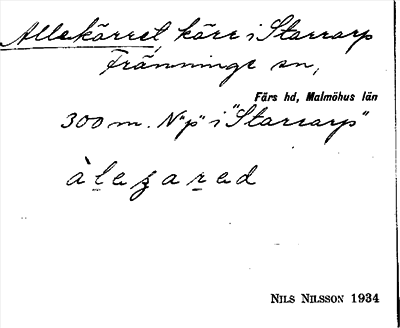 Allekärret, kärr i Starrarp
Fränninge sn,
Färs hd, Malmöhus län
300 m. N "p" i "Starrarp"
àlezared
NILS NILSSON 1934